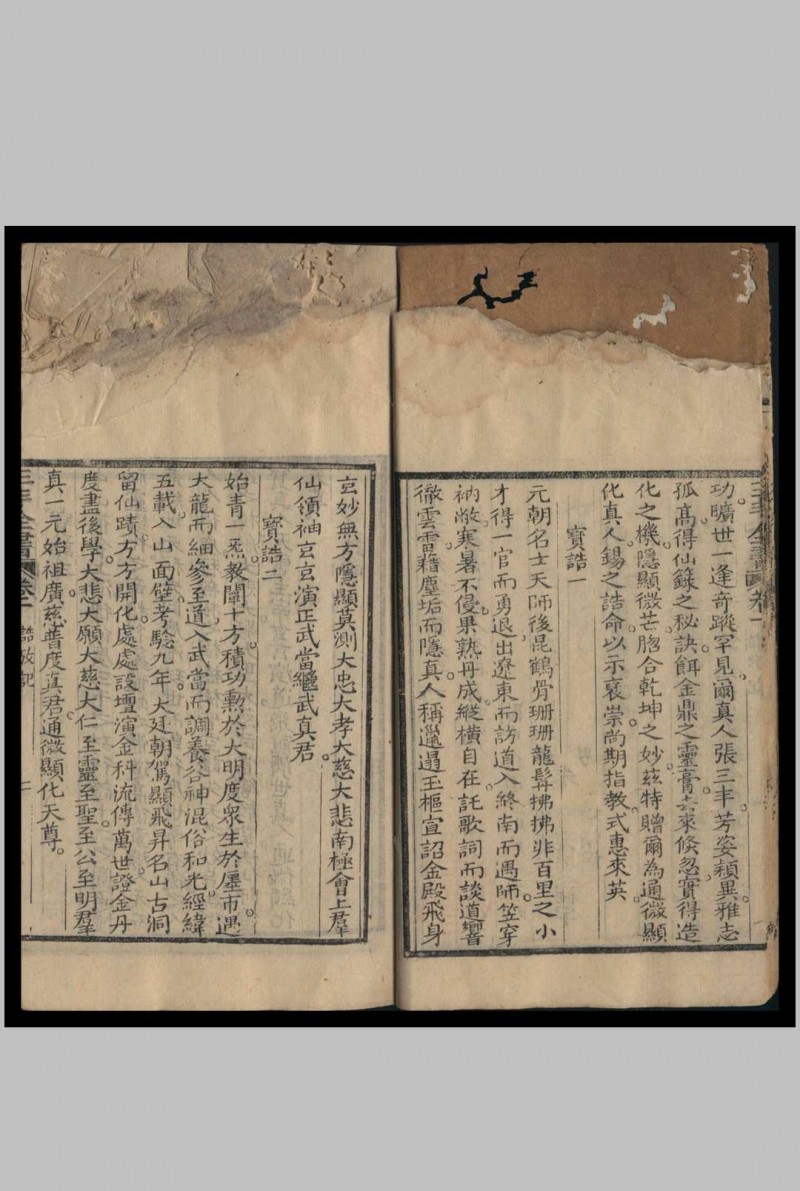 三丰全書 卷一
功。曠世一逢奇蹤罕見。爾真人張三丰芳姿穎異雅志
孤高得仙籙之秘訣餌金鼎之靈膏去來倏忽。實得造
化之機。隱顯微茫。脗合乾坤之妙。茲特贈爾為通微顯
化真人錫之誥命以示褒崇。尚期指教式惠來英。
寶誥一
元朝名士天師後昆鶴骨珊珊龍髯拂拂非百里之小
才得一官而勇退。出遼東而訪道入終南而遇師。笠穿
衲敝。寒暑不侵。果熟丹成。縱橫自在。託歌詞而談道響
徹雲霄藉塵垢而隱真。人稱邋遢玉樞宣詔金殿飛身
玄妙無方。隱顯莫測大忠大孝大慈大悲南極會上羣
仙領袖玄玄演正武當繼武真君。
寶誥二
始青一炁。教闡十方。積功勲於大明度衆生於廛市。遇
大龍而細參至道。入武當而調養谷神混俗和光。經緯
五載入山面壁。考驗九年。大廷朝駕顯飛昇名山古洞
留仙蹟。方方開化。處處設壇演金科流傳萬世。證金丹
度盡後學。大悲大願大慈大仁至靈至聖。至公至明羣
真一元始祖廣慈普度真君。通微顯化天尊。
三丰全書 卷一 誥敕記